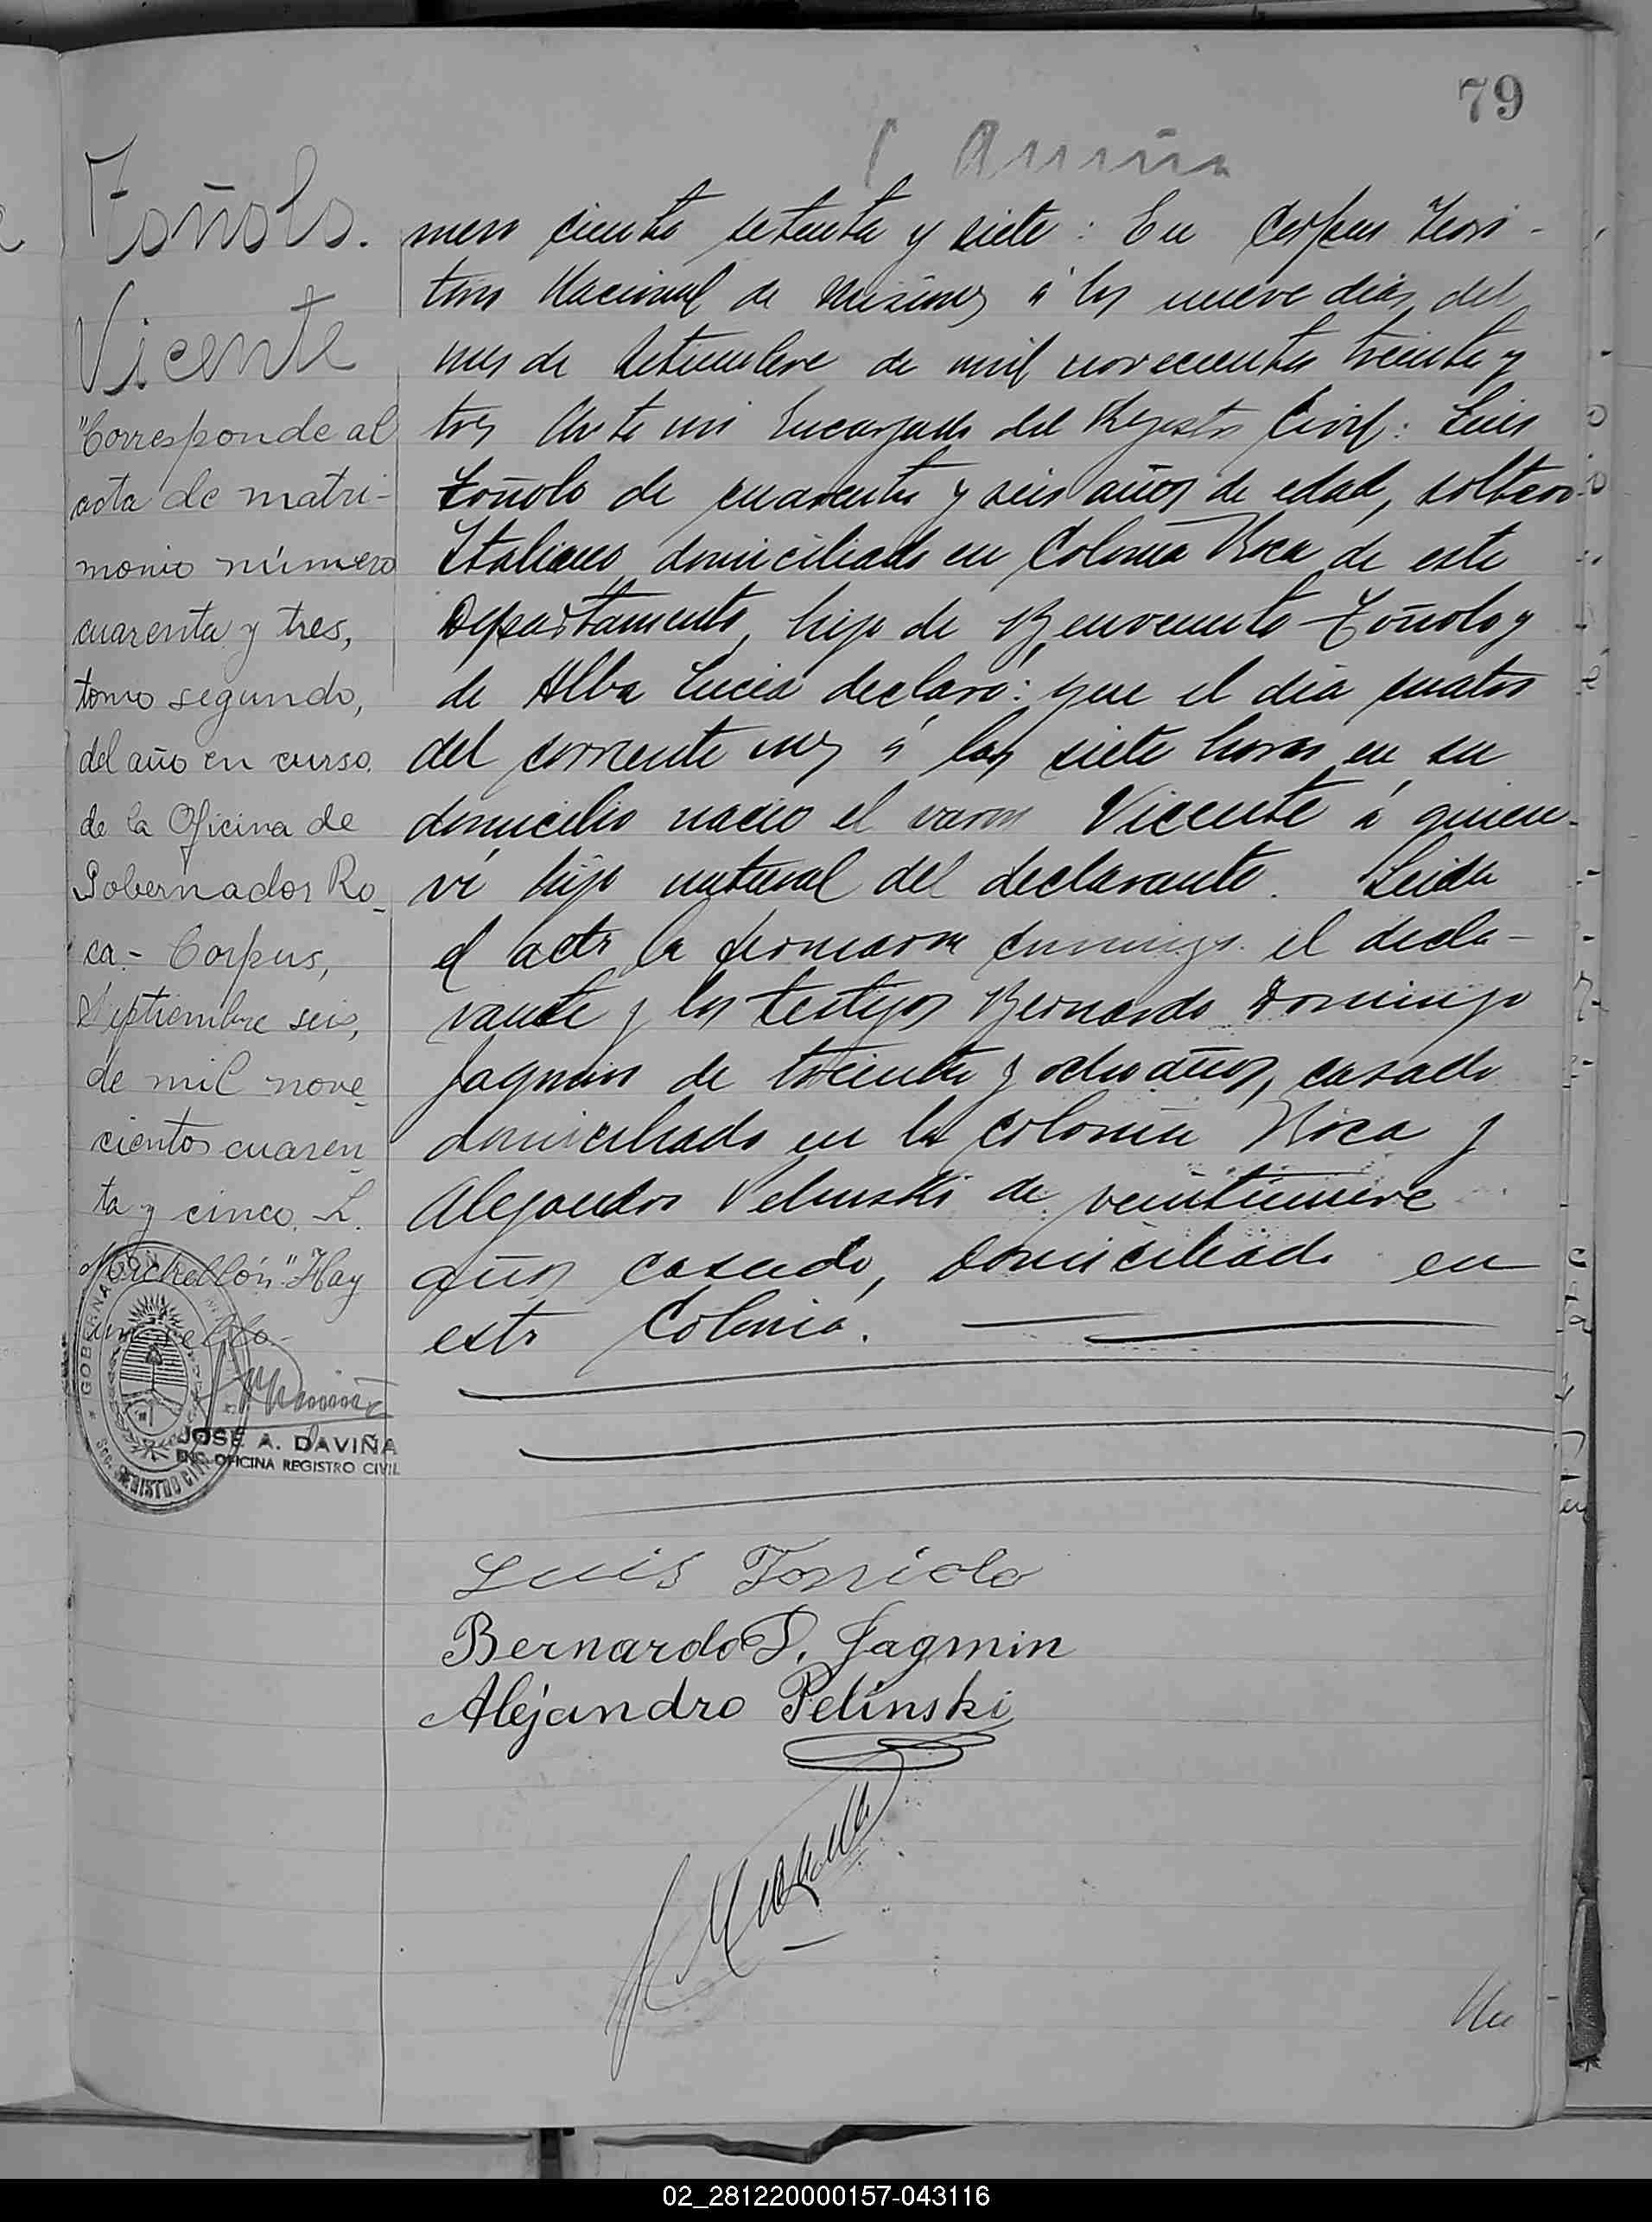 79
Toñolo.
Vicente
"Corresponde al
acta de matri-
monio número
cuarenta y tres,
tomo segundo,
del año en curso.
de la Oficina de
Gobernador Ro-
ca.- Corpus,
Septiembre seis,
de mil nove-
cientos cuaren-
ta y cinco. L.
"Hay
un sello.-
JOSÉ A. DAVIÑA
ENC. OFICINA REGISTRO CIVIL
mero ciento setenta y siete: En Corpus Terri-
torio Nacional de Misiones á los nueve dias del
mes de Setiembre de mil novecientos treinta y
tres Ante mi Encargado del Registro Civil: Luis
Toñolo de cuarenta y seis años de edad, soltero
Italiano domiciliado en Colonia Roca de este
Departamento, hijo de Benvenuto Toñolo y
de Alba Lucia declaró: que el dia cuatro
del corriente mes á las siete horas en su
domicilio nació el varon Vicente á quien
ví hijo natural del declarante. Leida
el acta la firmaron conmigo el decla-
rante y los testigos Bernardo Domingo
Jagmin de treinta y ocho años, casado
domiciliado en la colonia Roca y
Alejandro Pelinski de veintinueve
años casado, domiciliado en
esta Colonia.
Luis Toniolo
Bernardo D. Jagmin
Alejandro Pelinski
Nu
02_281220000157-043116